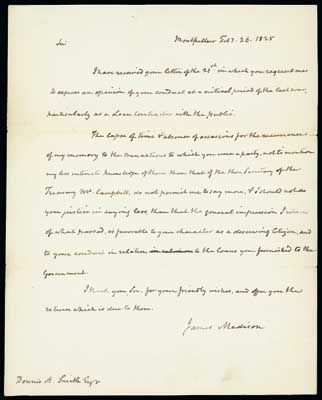 Montpellier Feby. 26. 1825
Sir
I have received your letter of the 21st. in which you request me
to express an opinion of your conduct at a critical period of the last war,
particularly as a Loan contractor with the public.
The lapse of time & absence of occasions for the
of my memory to the transactions to which you were a party, not to mention
my less intimate knowledge of them than that of the then Secretary of the
Treasury Mr. Campbell, do not permit me to say more, & I should not do
you justice in saying less, than that the general impression I retain
of what passed, is favorable to your character as a deserving Citizen, and
to your conduct in relation to the loans you furnished to the
Government.
I thank you Sir, for your friendly wishes, and offer you the
return which is due to them.
James Madison
Dennis A. Smith Esqr